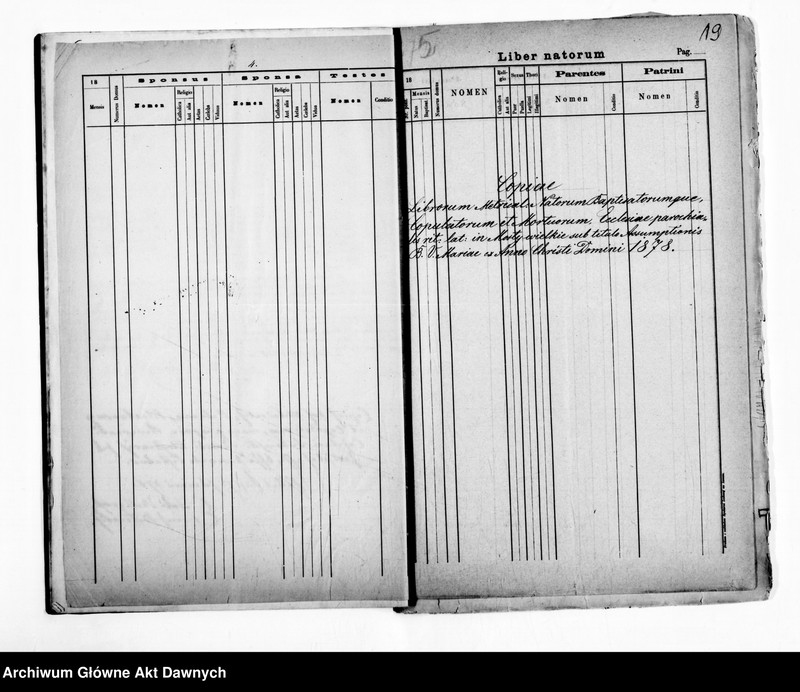 4.
18 Sponsus Sponsa Testes
Mensis Numerus Domus Nomen Religio Catholica Aut alia Aetas Caelebs Viduus Nomen Religio Catholica Aut alia Aetas Caelebs Vidua Nomen Conditio
19
15
Liber natorum Pag.
18 Religio Sexus Thori Parentes Patrini
Mensis Natus Baptisat Numerus domus NOMEN Catholica Aut alia Puer Puella Legitimi Illegitimi Nomen Conditio Nomen Conditio
Copiae
Librorum Metrical: Natorum Baptisatorumque,
Copulatorum et Mortuorum, Ecclesiae parochia-
lis rit: lat: in Mosty wielkie sub titulo Assumptionis
B. V. Mariae es Anno Christi Domini 1878.
Archiwum Główne Akt Dawnych